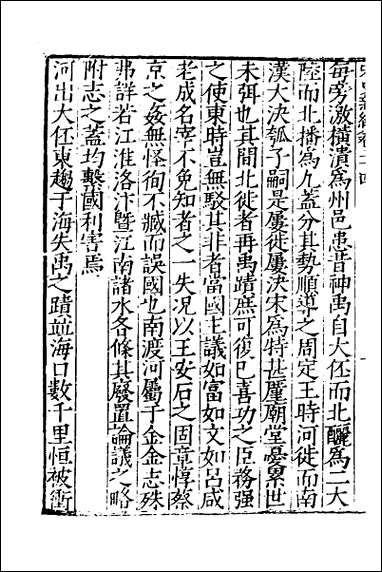 每旁激橫潰為州邑患昔神禹自大伾而北釃為二大
陸而北播為九蓋分其勢順導之周定王時河徙而南
漢大決瓠子嗣是屢徙屢決宋為特甚廑廟堂憂累世
未弭也其閒北徙者再禹蹟庶可復巳喜功之臣務强
之使東時豈無駮其非者當國主議如富如文如呂咸
老成名宰不免知者之一失况以王安石之固章惇蔡
京之姦無怪徇不臧而誤國也南渡河屬于金金志殊
弗詳若江淮洛汴暨江南諸水各條其廢置論議之略
附志之蓋均繫國利害焉
河出大伾東趨于海失禹之蹟並海口數千里恒被衝